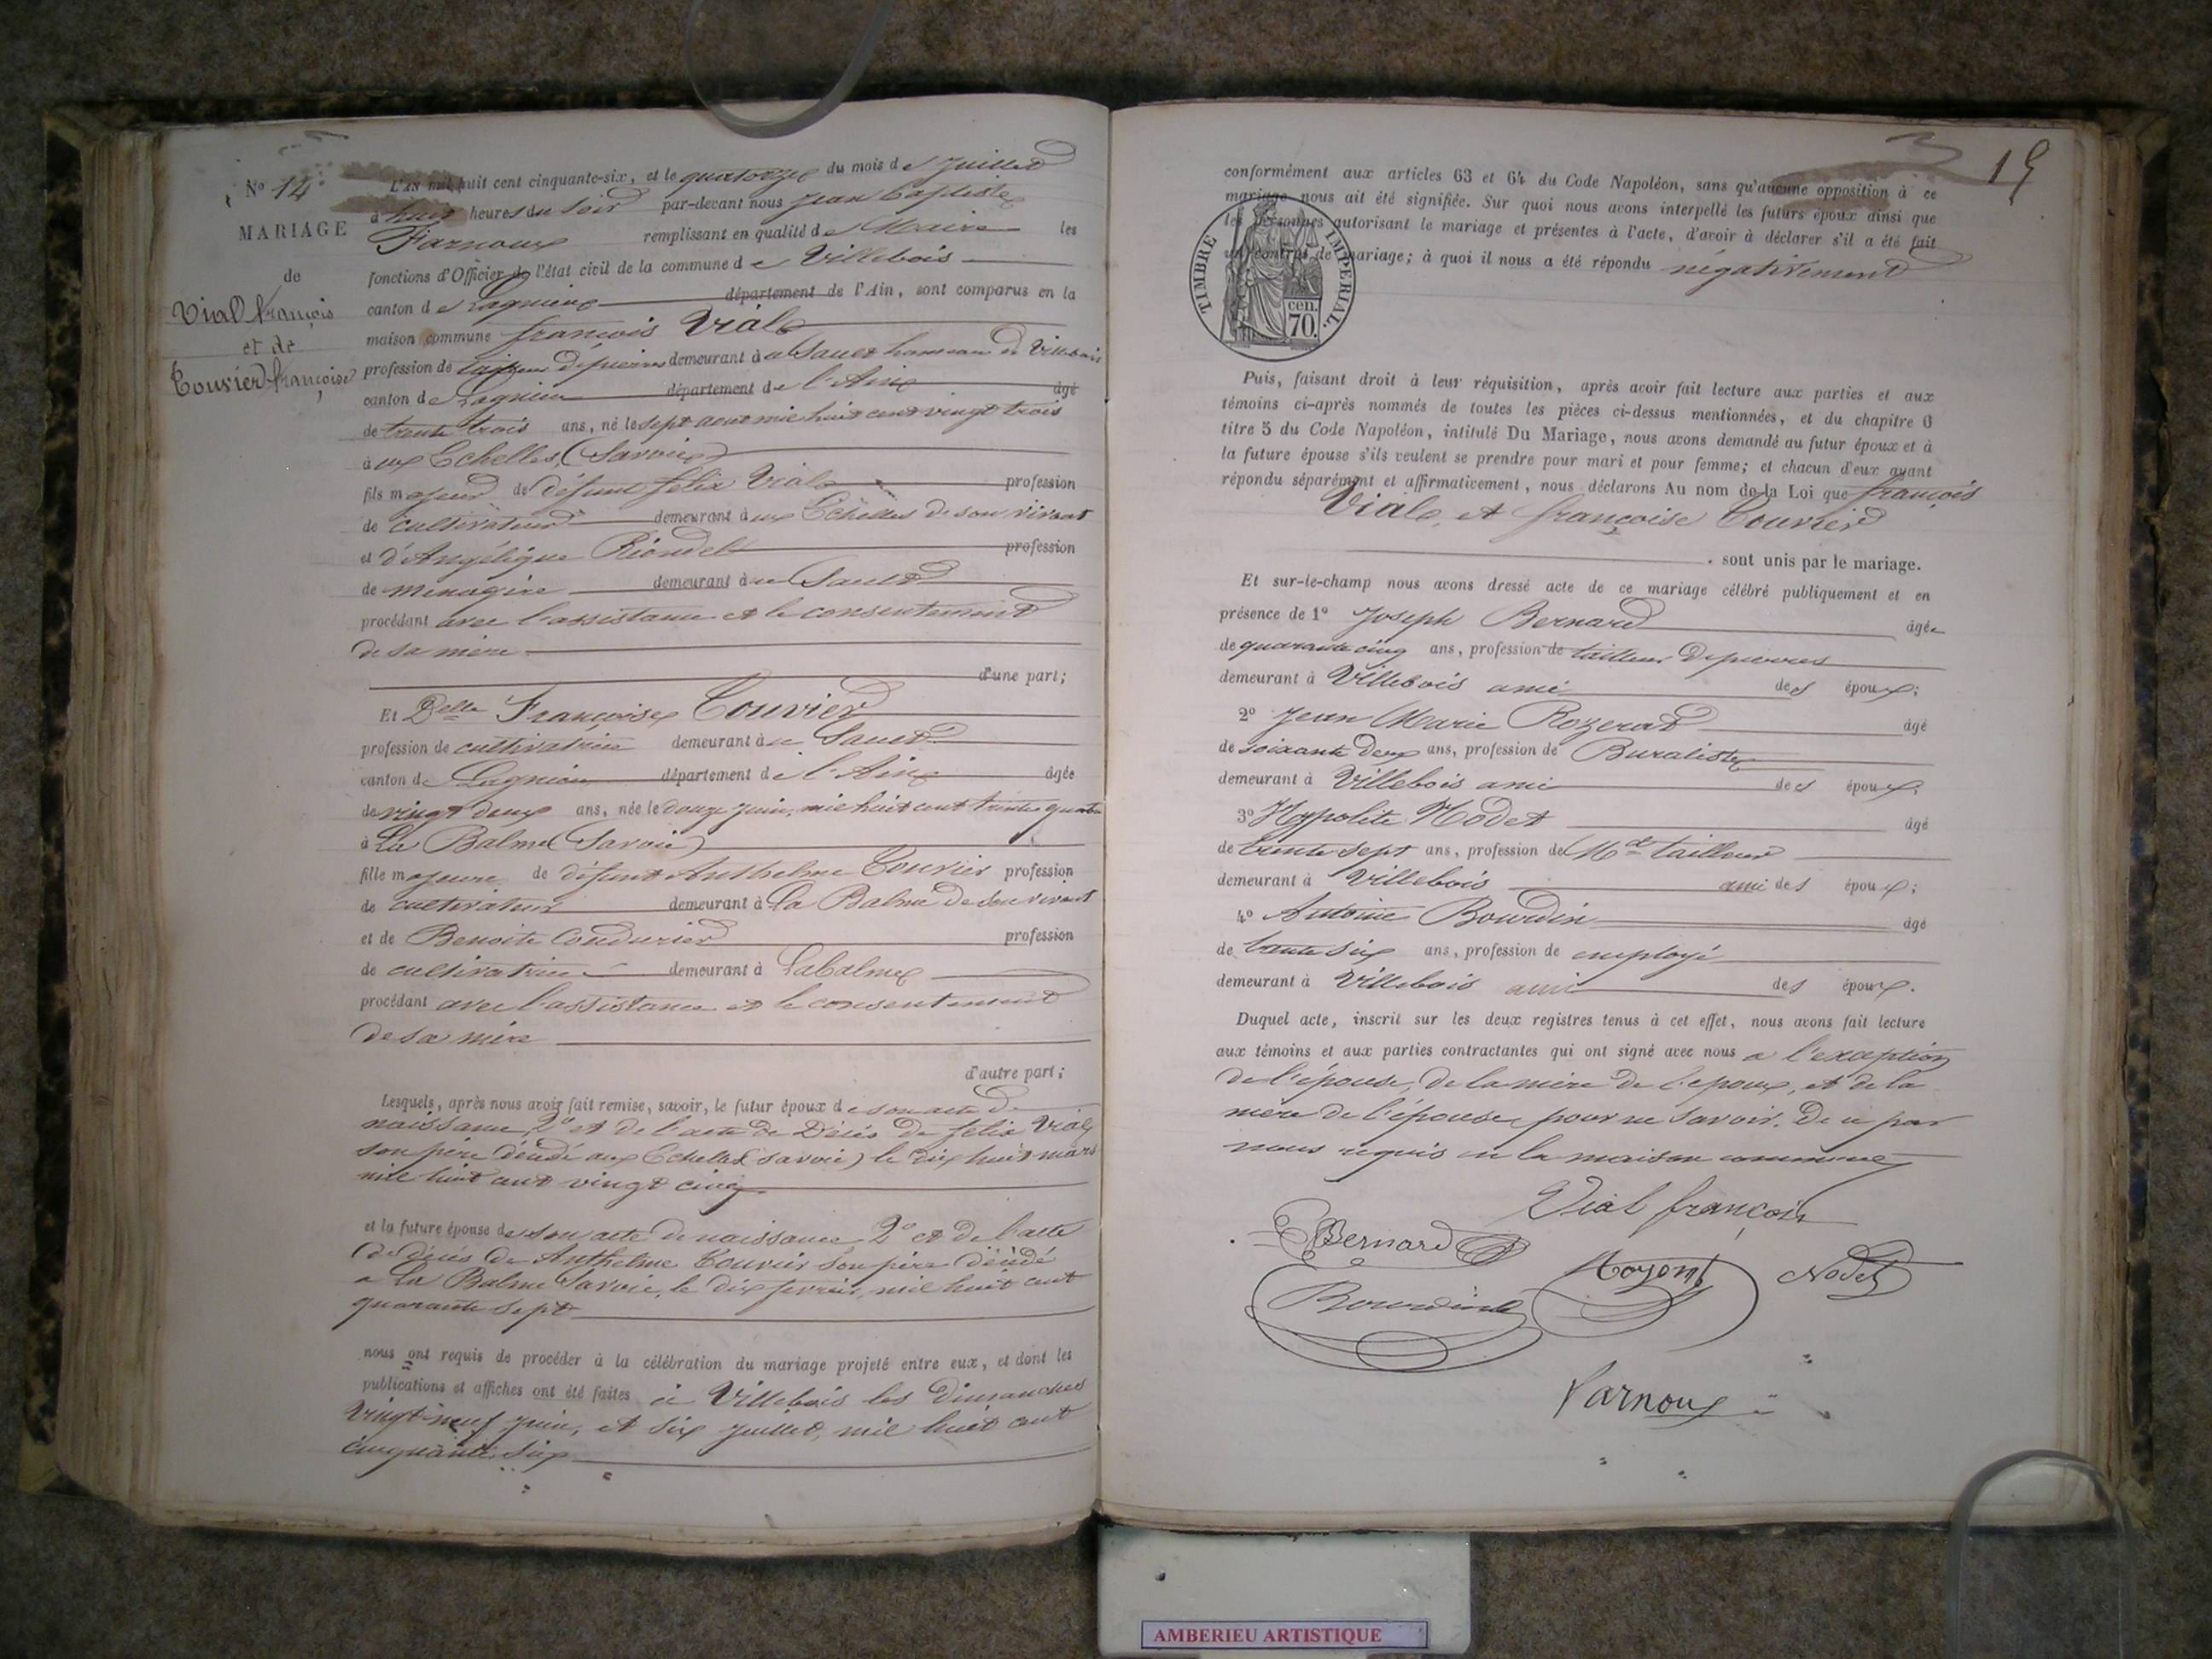 N° 14
MARIAGE
de
Vial françois
et de
Couvier françoise
L'AN mil huit cent cinquante-six, et le quatorze du mois de Juillet
à huit heures du soir par-devant nous Jean Baptiste
Farnoux remplissant en qualité de Maire les
fonctions d'Officier de l'état civil de la commune de Villebois
canton de Lagnieu département de l'Ain, sont comparus en la
maison commune françois Vial
profession de tailleur de pierres demeurant à au Sault hameau de Villebois
canton de Lagnieu département de l'Ain âgé
de trente trois ans, né le sept aout mil huit cent vingt trois
à ux Echelles (Savoie)
fils majeur de défunt félix Vial profession
de cultivateur demeurant à ux Echelles de son vivant
et d'Angélique Riondel profession
de ménagère demeurant à u Sault
procédant avec l'assistance et le consentement
de sa mère
d'une part;
Et Delle Françoise Couvier
profession de cultivatrice demeurant à u Sault
canton de Lagnieu département de l'Ain âgée
de vingt deux ans, née le douze juin, mil huit cent trente quatre
à La Balme (Savoie)
fille majeure de défunt Anthelme Couvier profession
de cultivateur demeurant à La Balme de son vivant
et de Benoite Condurier profession
de cultivatrice demeurant à Labalme
procédant avec l'assistance et le consentement
de sa mère
d'autre part;
Lesquels, après nous avoir fait remise, savoir, le futur époux de son acte de
naissance, 2° et de l'acte de Décès de félix Vial
son père décédé aux Echelles (Savoie) le dix huit mars
mil huit cent vingt cinq
et la future épouse de son acte de naissance 2° et de l'acte
de décès de Anthelme Couvier son père décédé
a La Balme Savoie, le dix fevrier, mil huit cent
quarante sept
nous ont requis de procéder à la célébration du mariage projeté entre eux, et dont les
publications et affiches ont été faites à Villebois les Dimanches
Vingt-neuf juin, et six juillet, mil huit cent
cinquante six
19
conformément aux articles 63 et 64 du Code Napoléon, sans qu'aucune opposition à ce
mariage nous ait été signifiée. Sur quoi nous avons interpellé les futurs époux ainsi que
les personnes autorisant le mariage et présentes à l'acte, d'avoir à déclarer s'il a été fait
un contrat de mariage; à quoi il nous a été répondu négativement
TIMBRE IMPERIAL.
cen.
70.
Puis, faisant droit à leur réquisition, après avoir fait lecture aux parties et aux
témoins ci-après nommés de toutes les pièces ci-dessus mentionnées, et du chapitre 6
titre 5 du Code Napoléon, intitulé Du Mariage, nous avons demandé au futur époux et à
la future épouse s'ils veulent se prendre pour mari et pour femme; et chacun d'eux ayant
répondu séparément et affirmativement, nous déclarons Au nom de la Loi que françois
Vial, et françoise Couvier
. sont unis par le mariage.
Et sur-le-champ nous avons dressé acte de ce mariage célébré publiquement et en
présence de 1° Joseph Bernard âgé
de quarante cinq ans, profession de tailleur de pierres
demeurant à Villebois ami des époux;
2° Jean Marie Rozerat âgé
de soixante deux ans, profession de Buraliste
demeurant à Villebois ami des époux,
3° Hyppolite Nodet âgé
de trente sept ans, profession de Md tailleur
demeurant à Villebois ami des époux;
4° Antoine Bourdin âgé
de trente six ans, profession de employé
demeurant à Villebois ami des époux.
Duquel acte, inscrit sur les deux registres tenus à cet effet, nous avons fait lecture
aux témoins et aux parties contractantes qui ont signé avec nous a l'exception
de l'épouse, de la mère de l'epoux, et de la
mère de l'épouse pour ne savoir. De ce par
nous requis en la maison commune
Vial françois
Bernard
Nodet
Bourdin
Farnoux
AMBERIEU ARTISTIQUE